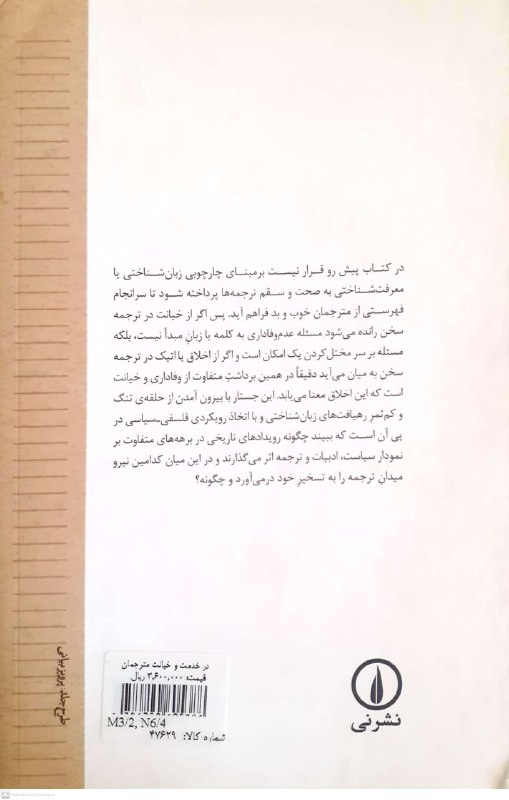 در کتاب پیش رو قرار نیست برمبنای چارچوبی زبان‌شناختی یا
معرفت‌شناختی به صحت و سقم ترجمه‌ها پرداخته شود تا سرانجام
فهرستی از مترجمان خوب و بد فراهم آید. پس اگر از خیانت در ترجمه
سخن رانده می‌شود مسئله عدم‌وفاداری به کلمه یا زبانِ مبدأ نیست، بلکه
مسئله بر سر مختل‌کردن یک امکان است و اگر از اخلاق یا اتیک در ترجمه
سخن به میان می‌آید دقیقاً در همین برداشتِ متفاوت از وفاداری و خیانت
است که این اخلاق معنا می‌یابد. این جستار با بیرون آمدن از حلقه‌ی تنگ
و کم‌ثمرِ رهیافت‌های زبان‌شناختی و با اتخاذ رویکردی فلسفی‌ـ‌سیاسی در
پی آن است که ببیند چگونه رویدادهای تاریخی در برهه‌های متفاوت بر
نمودار سیاست، ادبیات و ترجمه اثر می‌گذارند و در این میان کدامین نیرو
میدانِ ترجمه را به تسخیرِ خود درمی‌آورد و چگونه؟
طرح جلد: پرویز بیانی
در خدمت و خیانت مترجمان
قیمت: ۳,۶۰۰,۰۰۰ ریال
M3/2, N6/4
شماره کالا: ۴۷۶۲۹
نشرنی